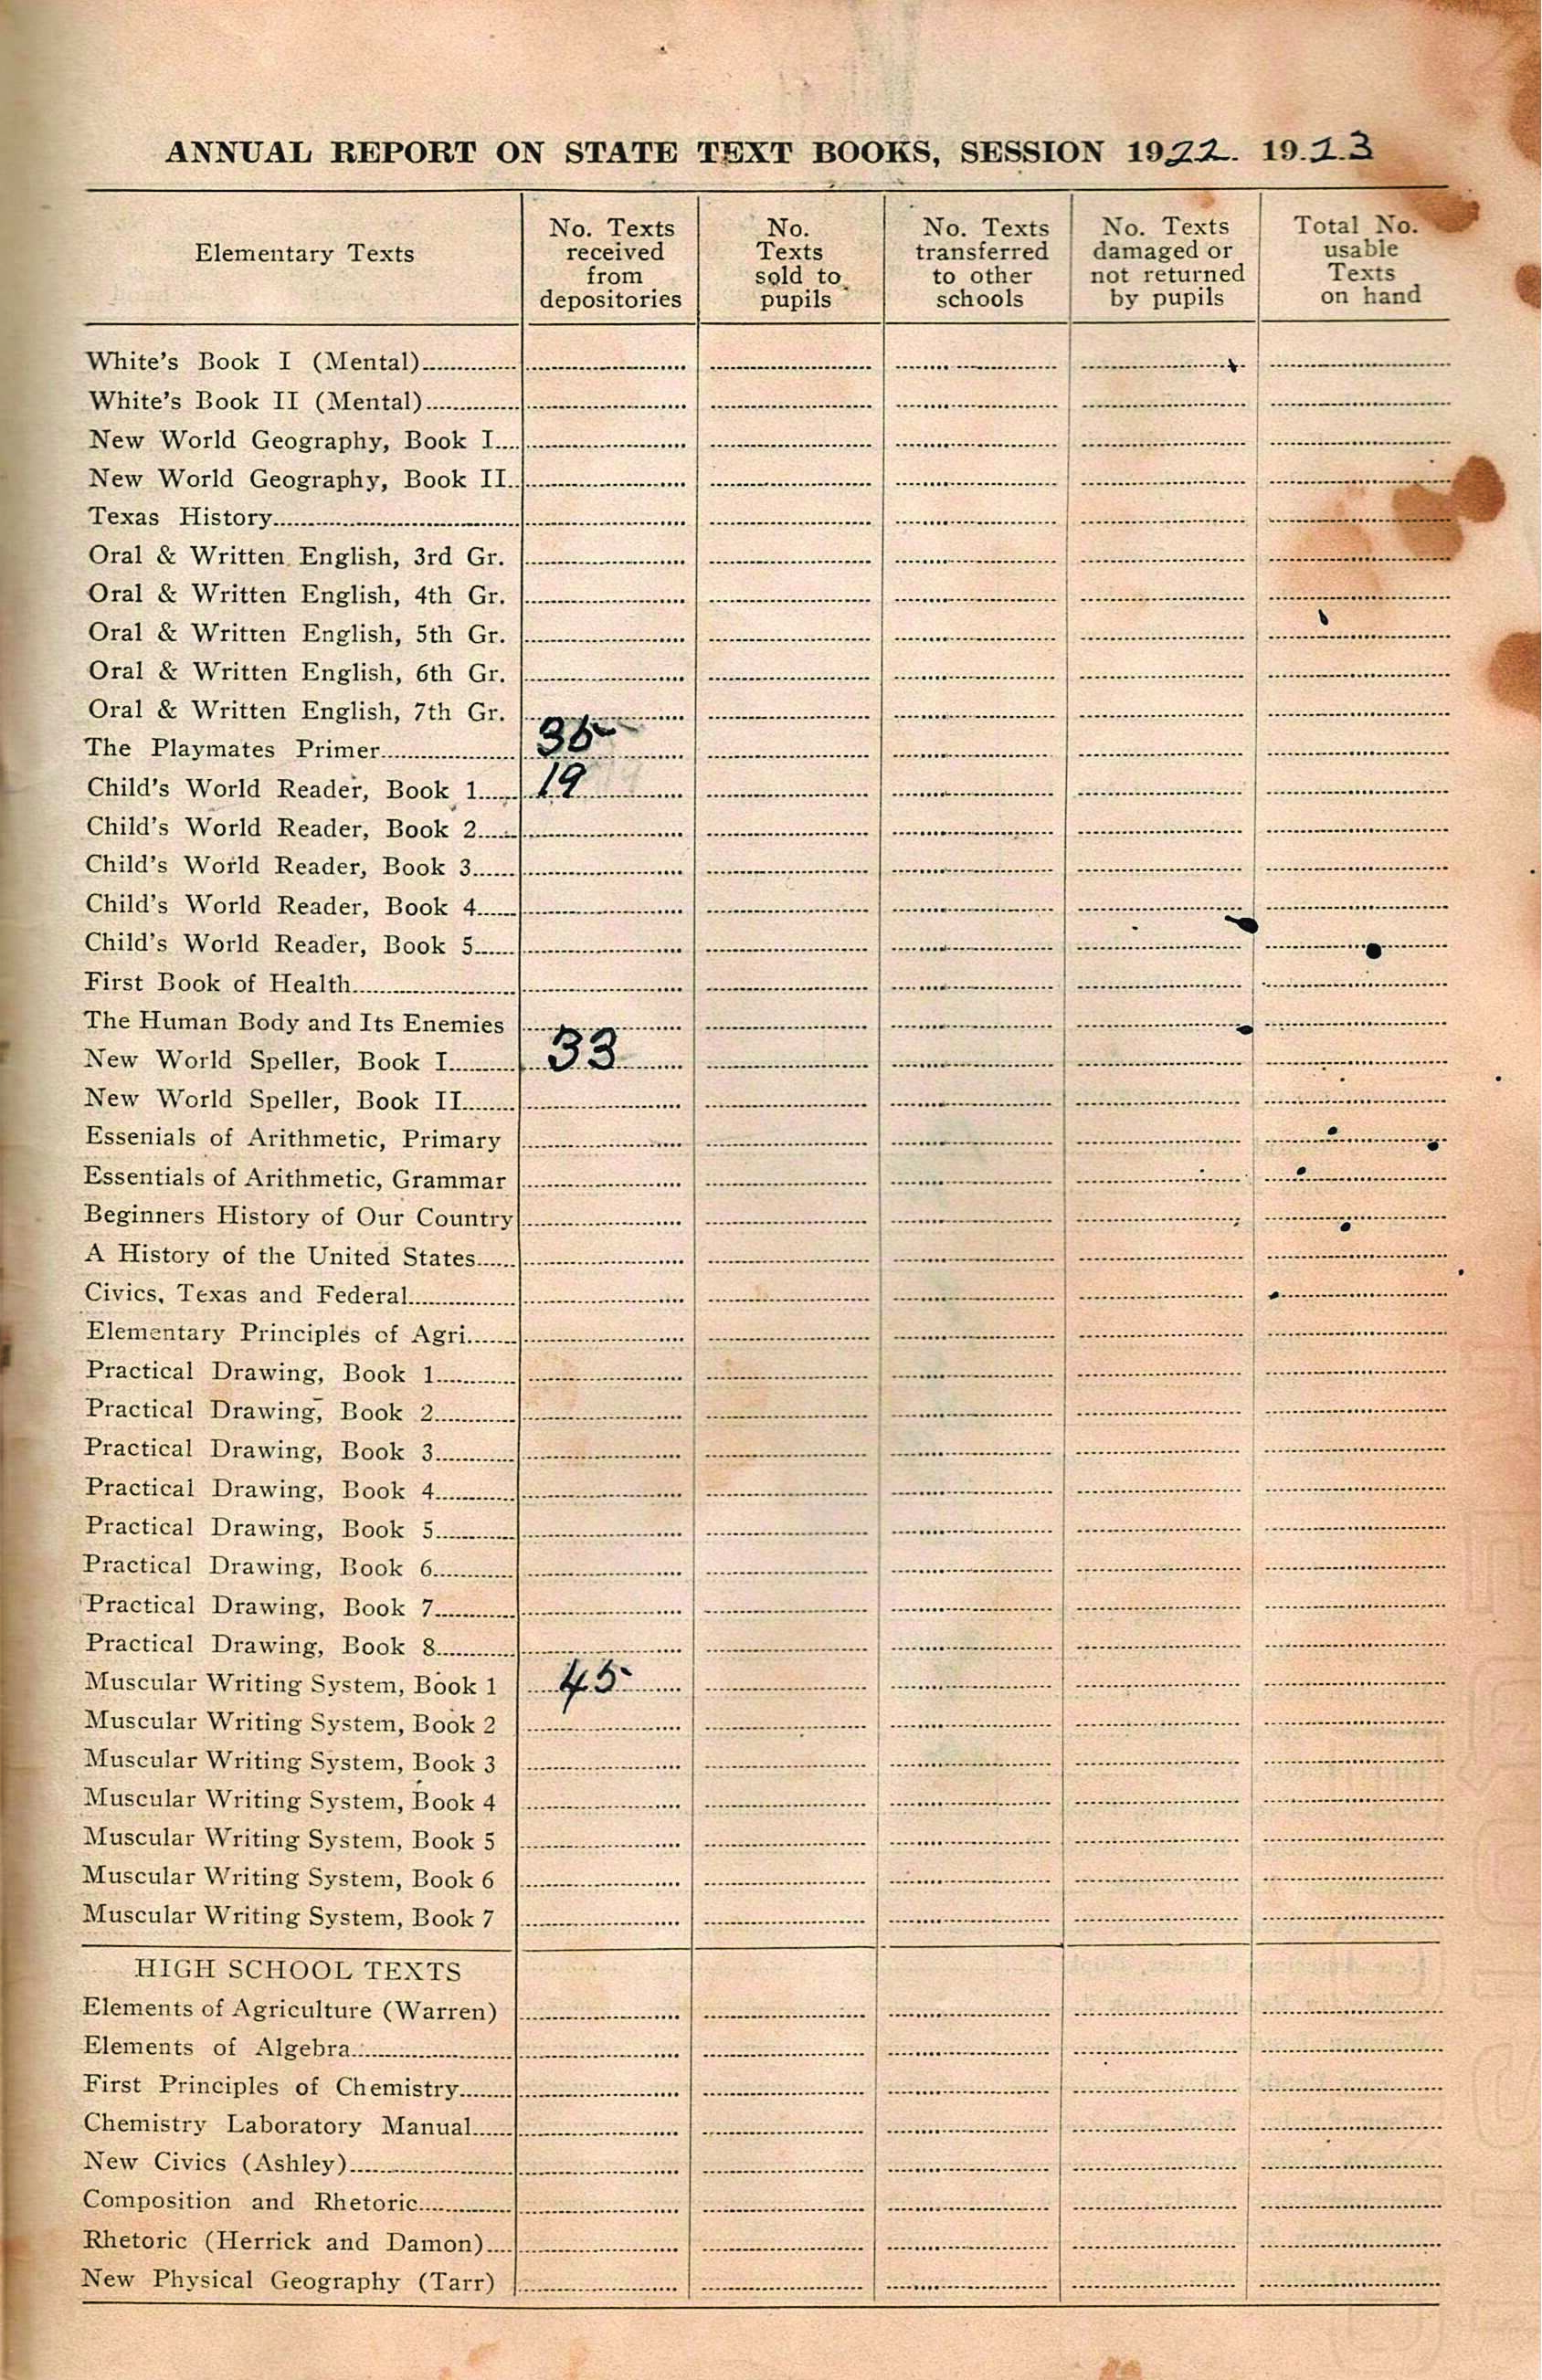 ANNUAL REPORT ON STATE TEXT BOOKS, SESSION 1922. 19.23
Elementary Texts
No. Texts received from depositories
No. Texts sold to pupils
No. Texts transferred to other schools
No. Texts damaged or not returned by pupils
Total No. usable Texts on hand
White's Book I (Mental)
White's Book II (Mental)
New World Geography, Book I
New World Geography, Book II
Texas History
Oral & Written English, 3rd Gr.
Oral & Written English, 4th Gr.
Oral & Written English, 5th Gr.
Oral & Written English, 6th Gr.
Oral & Written English, 7th Gr.
The Playmates Primer 35
Child's World Reader, Book 1 19
Child's World Reader, Book 2
Child's World Reader, Book 3
Child's World Reader, Book 4
Child's World Reader, Book 5
First Book of Health
The Human Body and Its Enemies
New World Speller, Book I 33
New World Speller, Book II
Essenials of Arithmetic, Primary
Essentials of Arithmetic, Grammar
Beginners History of Our Country
A History of the United States
Civics, Texas and Federal
Elementary Principles of Agri.
Practical Drawing, Book 1
Practical Drawing, Book 2
Practical Drawing, Book 3
Practical Drawing, Book 4
Practical Drawing, Book 5
Practical Drawing, Book 6
Practical Drawing, Book 7
Practical Drawing, Book 8
Muscular Writing System, Book 1 45
Muscular Writing System, Book 2
Muscular Writing System, Book 3
Muscular Writing System, Book 4
Muscular Writing System, Book 5
Muscular Writing System, Book 6
Muscular Writing System, Book 7
HIGH SCHOOL TEXTS
Elements of Agriculture (Warren)
Elements of Algebra
First Principles of Chemistry
Chemistry Laboratory Manual
New Civics (Ashley)
Composition and Rhetoric
Rhetoric (Herrick and Damon)
New Physical Geography (Tarr)